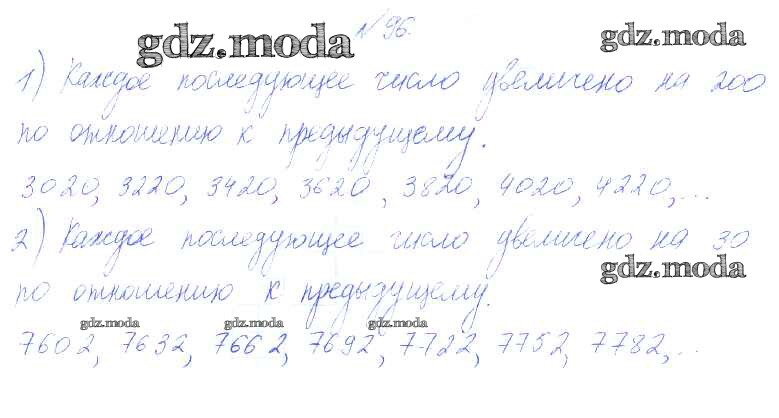 №96.
gdz.moda gdz.moda
1) Каждое последующее число увеличено на 200
по отношению к предыдущему.
3020, 3220, 3420, 3620, 3820, 4020, 4220,...
2) Каждое последующее число увеличено на 30
gdz.moda
по отношению к предыдущему.
gdz.moda gdz.moda gdz.moda
7602, 7632, 7662, 7692, 7722, 7752, 7782,...